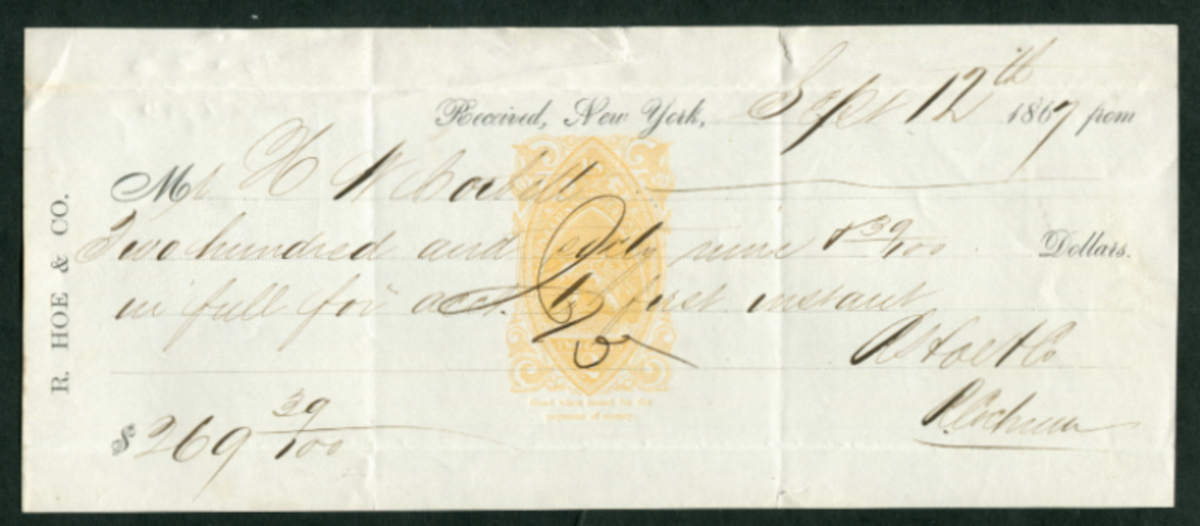 R. HOE & CO.
Received, New York, Sept 12th 1867 from
Mr H W
Two hundred and sixty nine & 39/100 Dollars.
in full for acct. to first instant
R Hoe & Co
$269 39/100
Good when issued for the
payment of money.